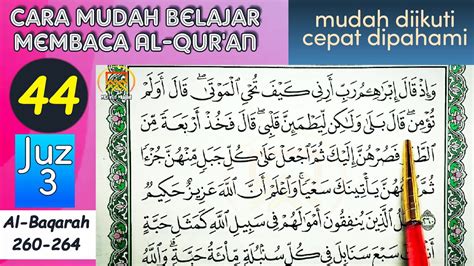 CARA MUDAH BELAJAR
MEMBACA AL-QUR'AN
mudah diikuti
cepat dipahami
44
Juz
3
Al-Baqarah
260-264
وَإِذْ قَالَ إِبْرَٰهِـۧمُ رَبِّ أَرِنِى كَيْفَ تُحْىِ ٱلْمَوْتَىٰ ۖ قَالَ أَوَلَمْ
تُؤْمِن ۖ قَالَ بَلَىٰ وَلَـٰكِن لِّيَطْمَئِنَّ قَلْبِى ۖ قَالَ فَخُذْ أَرْبَعَةً مِّنَ
فَصُرْهُنَّ إِلَيْكَ ثُمَّ ٱجْعَلْ عَلَىٰ كُلِّ جَبَلٍ مِّنْهُنَّ جُزْءًا
ثُمَّ يَأْتِينَكَ سَعْيًا ۚ وَٱعْلَمْ أَنَّ ٱللَّهَ عَزِيزٌ حَكِيمٌ
ٱلَّذِينَ يُنفِقُونَ أَمْوَٰلَهُمْ فِى سَبِيلِ ٱللَّهِ كَمَثَلِ حَبَّةٍ
سَبْعَ سَنَابِلَ فِى كُلِّ سُنۢبُلَةٍ مِّا۟ئَةُ حَبَّةٍ ۗ وَٱللَّهُ